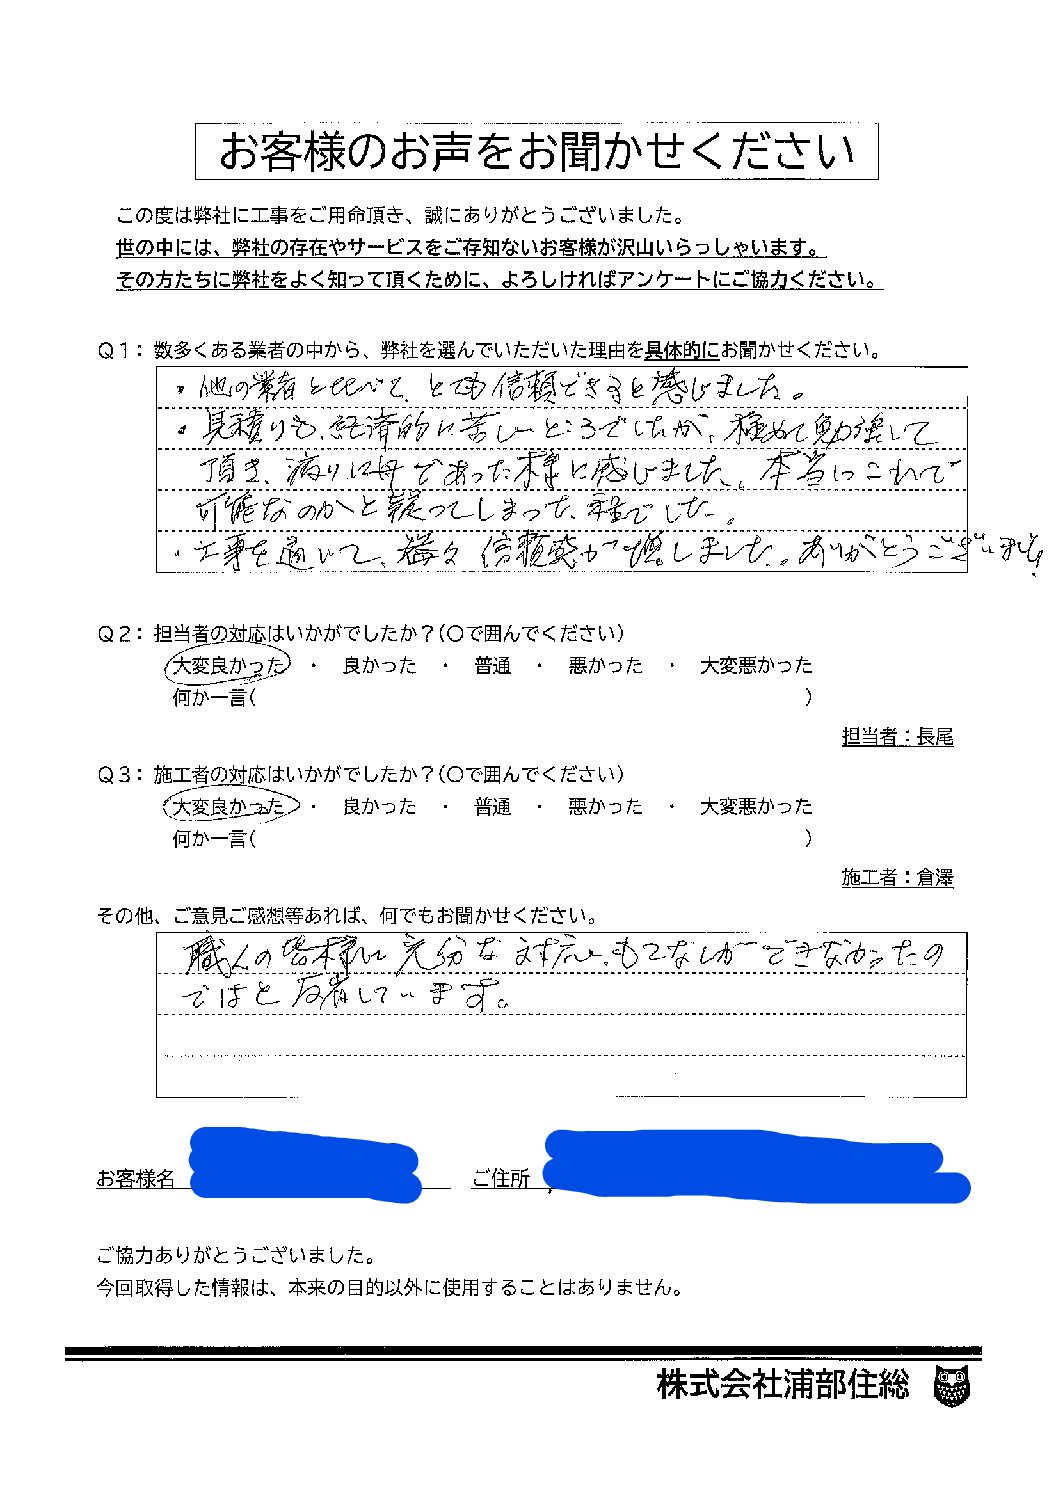 お客様のお声をお聞かせください
この度は弊社に工事をご用命頂き、誠にありがとうございました。
世の中には、弊社の存在やサービスをご存知ないお客様が沢山いらっしゃいます。
その方たちに弊社をよく知って頂くために、よろしければアンケートにご協力ください。
Q1：数多くある業者の中から、弊社を選んでいただいた理由を具体的にお聞かせください。
・他の業者と比べて、とても信頼できると感じました。
・見積りも、経済的に苦しいところでしたが、極めて勉強して
頂き、であった様に感じました。本当にこれで
可能なのかと疑ってしまった程でした。
・工事を通いて、益々信頼感が増しました。ありがとうございました
Q2：担当者の対応はいかがでしたか？（〇で囲んでください）
大変良かった ・ 良かった ・ 普通 ・ 悪かった ・ 大変悪かった
何か一言（ ）
担当者：長尾
Q3：施工者の対応はいかがでしたか？（〇で囲んでください）
大変良かった ・ 良かった ・ 普通 ・ 悪かった ・ 大変悪かった
何か一言（ ）
施工者：倉澤
その他、ご意見ご感想等あれば、何でもお聞かせください。
職人の皆様に充分な対応、もてなしができなかったの
ではと反省しています。
お客様名 ご住所
ご協力ありがとうございました。
今回取得した情報は、本来の目的以外に使用することはありません。
株式会社浦部住総